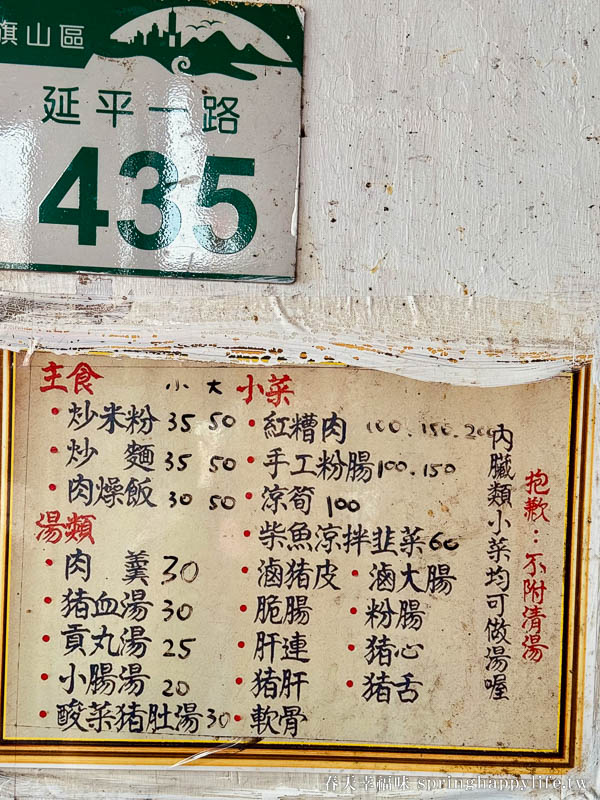 旗山區
延平一路
435
主食 小 大
炒米粉 35 50
炒麵 35 50
肉燥飯 30 50
湯類
肉羹 30
豬血湯 30
貢丸湯 25
小腸湯 20
酸菜豬肚湯 30
小菜
紅糟肉 100.150.200
手工粉腸 100.150
涼筍 100
柴魚涼拌韭菜 60
滷豬皮 滷大腸
脆腸 粉腸
肝連 豬心
豬肝 豬舌
軟骨
內臟類小菜均可做湯喔
抱歉:不附清湯
春天幸福味 springhappylife.tw